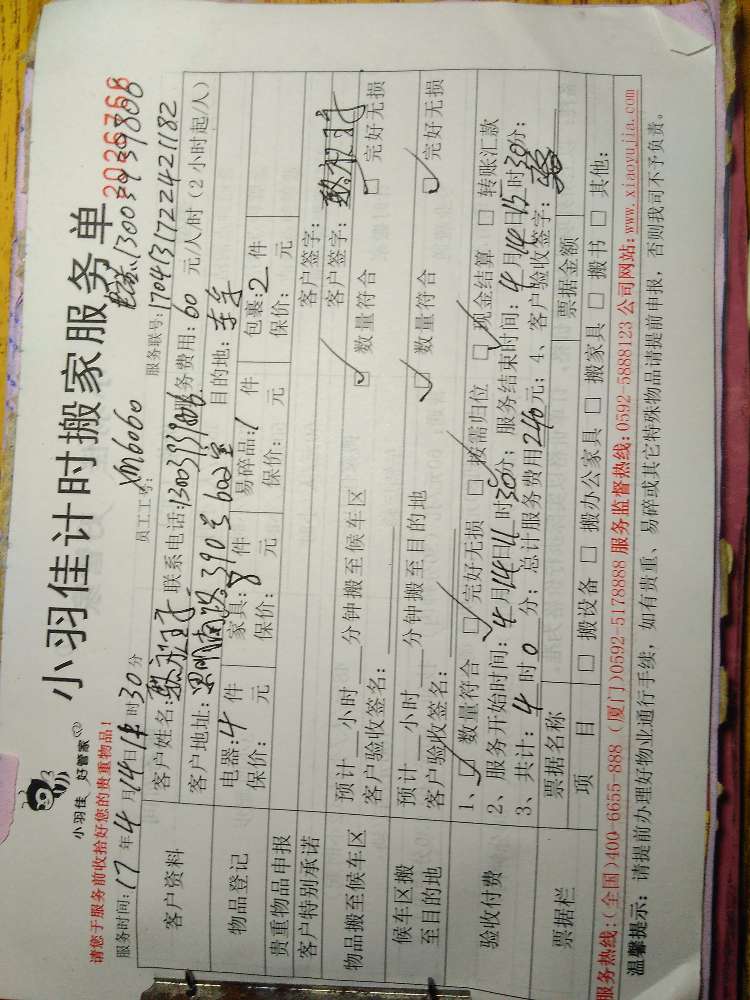 小羽佳 好管家
小羽佳计时搬家服务单
2026768
请您于服务前收拾好您的贵重物品!
13003939806
服务时间:17年4月14日 时30分 员工工号: XM6060 服务联号:170413172242421182
客户资料
客户姓名: 联系电话:13003939806 服务费用:60元/人/时(2小时起/人)
客户地址:思明南路390号602室 目的地:
物品登记
电器:4件 家具:8件 易碎品:1件 包裹:2件
保价: 元 保价: 元 保价: 元 保价: 元
贵重物品申报 客户签字:
客户特别承诺 客户签字:
物品搬至候车区
预计 小时 分钟搬至候车区 □数量符合 □完好无损
客户验收签名:
候车区搬至目的地
预计 小时 分钟搬至目的地 □数量符合 □完好无损
客户验收签名:
验收付费
1、□数量符合 □完好无损 □按需归位 □现金结算 □转账汇款
2、服务开始时间:4月14日11时30分;服务结束时间:4月14日15时30分;
3、共计:4时0分;总计服务费用240元;4、客户验收签字:
票据栏
票据名称 票据金额
项目 □搬设备 □搬办公家具 □搬家具 □搬书 □其他:
服务热线:(全国)400-6655-888 (厦门)0592-5178888 服务监督热线:0592-5888123 公司网站:www.xiaoyujia.com
温馨提示:请提前办理好物业通行手续,如有贵重、易碎或其它特殊物品请提前申报,否则我司不予负责。